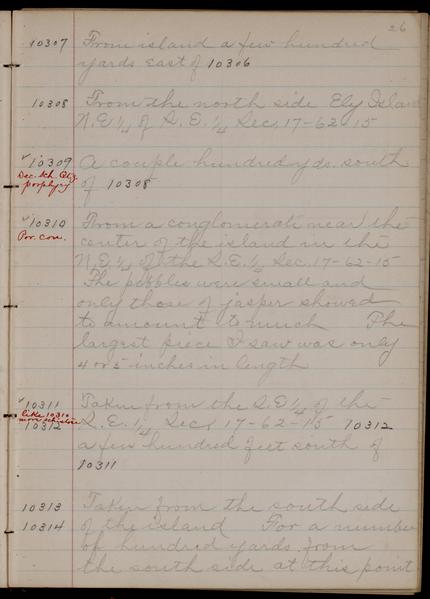 26
10307 From island a few hundred
yards east of 10306
10308 From the north side Ely Island
N.E.¼ of S.E.¼ Sec. 17-62-15
✓10309 A couple hundred yds. south
Dec. sch. Qtz.
porphyry of 10308
✓10310 From a conglomerate near the
Por. con. center of the island in the
N.E.¼ of the S.E.¼ Sec. 17-62-15
The pebbles were small and
only those of jasper showed
to amount to much The
largest piece I saw was only
4 or 5 inches in length
✓10311 Taken from the S.E¼ of the
like 10310
more schistose
10312 S.E.¼ Sec, 17-62-15 10312
a few hundred feet south of
10311
10313 Taken from the south side
10314 of the island For a number
of hundred yards from
the south side at this point